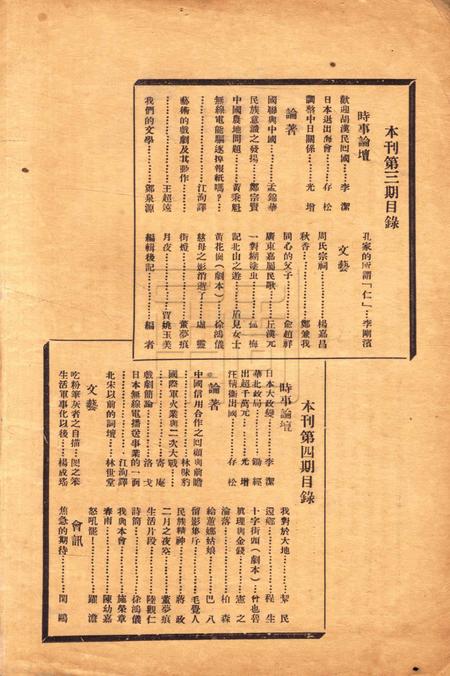 本刊第三期目錄
時事論壇
歡迎胡漢民回國……李 潔
日本退出海會……存 松
調整中日關係……光 增
論著
國聯與中國……孟錦華
民族意識之發揚……鄭宗賢
中國農地問題……黃秉魁
無線電能驅逐掉報紙嗎？…
……江洵譯
藝術的戲劇及其動作……
……王超凌
我們的文學……鄭泉源
孔家的所謂「仁」…李剛濱
文藝
周氏宗祠……楊嘉昌
秋香……鄭兼我
同心的父子……詹超祥
廣東嘉屬民歌……丘漢元
一對糊塗虫……孤 梅
記北山之遊……盾見女士
黃花崗（劇本）…徐鴻儀
慈母之影消逝了……盧 靈
街燈……董夢痕
月夜……賈姚玉美
編輯後記……編 者
本刊第四期目錄
時事論壇
日本大政變……李 潔
華北政局……錫 經
出超千萬元……光 增
汪精衛出國……存 松
論著
中國信用合作之回顧與前瞻
……林味豹
國際軍火業與二次大戰……
……寄 庵
戲劇簡論……洛 戈
日本無線電播送事業的一面
……江洵譯
北宋以前的詞壇……林世堂
文藝
吃粉筆灰者之自描…閔之笨
生活軍事化以後……楊成瑤
我對於大地……黎 民
還鄉……程 生
十字街頭（劇本）…竹也碧
真理與金錢……憲 之
淪落……柏 森
給薑娜姑娘……巴 八
留影集序……毛覺人
民族精神……蔣 政
二月之夜寒……董夢痕
生活片段……陸觀仁
詩簡……徐鴻儀
我與本會……施榮章
春雨……陳幼嘉
怒吼罷！……羅 澹
會訊
焦急的期待……閔 鷗